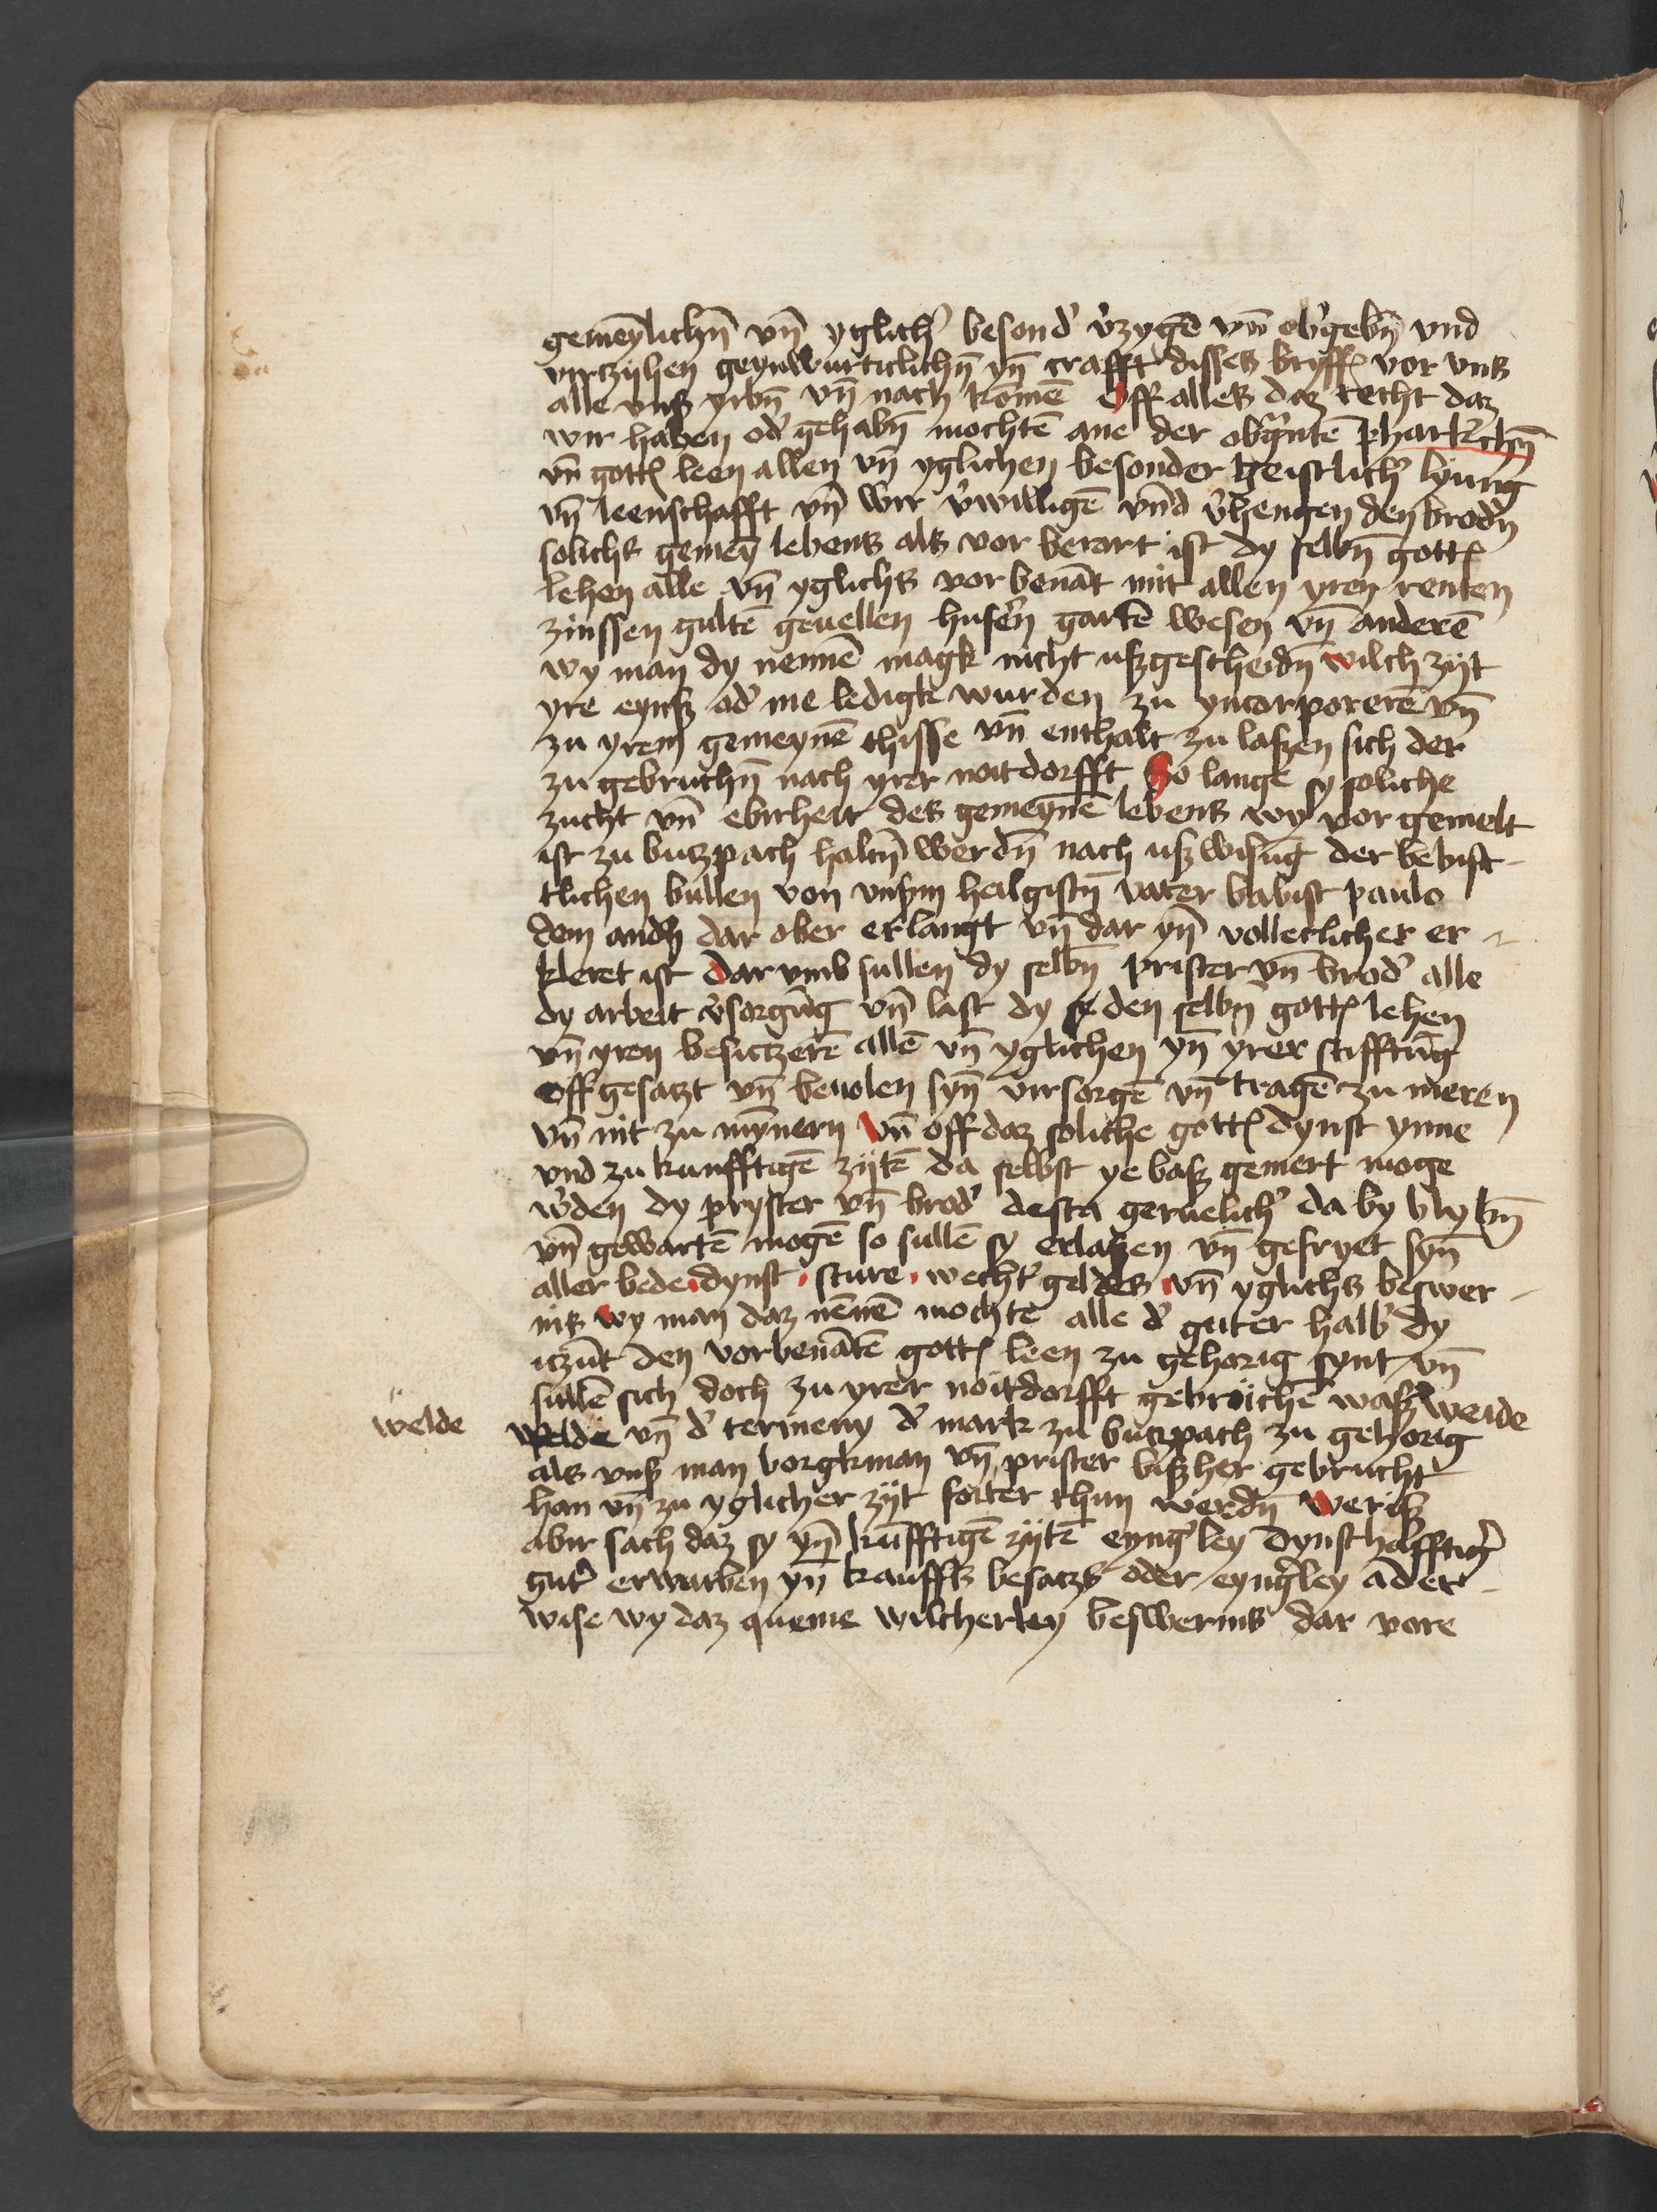 gemeȳlichn̄ vn̄ yglich' besond' v'zygē vn̄ ob'gebn̄ vnd
virczyhen geynwurticlichn̄ yn̄ crafft disses bryffs vor vns
alle vnß yrbn̄ vn̄ nach komē Off alles daz recht daz
wir haben od' gehabn̄ mochtē ane der obḡntē pharkirchn̄
vn̄ gotts leen allen vn̄ yglichen besonder geistlich' lyūng
vn̄ leenschafft vn̄ wir v'willigē vn̄d v'hengen den brod'n
solichs gemeȳ lebens als vor berort ist dy selbn̄ gotts
lehen alle vn̄ yglichs vor benāt mit allen yren renten
zinssen gultē geuellen husern̄ gartē wesen vn̄ anderē
wy man dy nennē magk nicht ußgescheidn̄ wilch zijt
yre eynß ad' me ledigk wurden zu yncorporerē vn̄
zu yrem gemeynē thisse vn̄ enthalt zu laßen sich der
zu gebruchn̄ nach yrer noitdorfft So lange sy soliche
zucht vn̄ ebirheit des gemeynē lebens wy vor gemelt
ist zu butzpach haltn̄ werdn̄ nach ußwisūg der bebist-
tlichen bullen von vnserm heilgistn̄ vater babist paulo
dem andn̄ dar ober erlangt vn̄ dar yn̄ vollerlicher er-
kleret ist Dar vmb sullen dy selbn̄ prister vn̄ brod' alle
dy arbeit v'sorgūg vn̄ last dy den selbn̄ gotts lehen
vn̄ yren besitzerē allē vn̄ yglichen yn̄ yrer stifftūg
offgesatzt vn̄ beuolen syn̄ virsorgē vn̄ tragē zu meren
vn̄ nit zu mȳnern Vn̄ off daz soliche gotts dynst ynne
vnd zu kunfftigē zijtē da selbst ye baß gemert moge
w'den dy pryster vn̄ brod' desta geruelich' da by blybn̄
vn̄ gewartē mogē so sullē sy erlaßen vn̄ gefryet syn̄
aller bede dynst sture wecht' geldes vn̄ yglichs beswer-
nis wy man daz nēnē mochte alle d' guter halb' dy
itzūt den vorbenātē gotts leen zu gehorig synt vn̄
sullē sich doch zu yrer noitdorfft gebruichē waß' weide
welde
welde vn̄ d' termeny d' mark zu butzpach zu gehorig
als vnß man borgkman vn̄ prister bißher gebrucht
han vn̄ zu yglicher zijt forter thun werdn̄ Weriß
abir sach daz sy yn̄ kūfftigē zijtē eyng'ley dynsthafftig'
gut' erwarben yn̄ kauffß besatzß oder eyng'ley ader-
wise wy daz queme wilcherley beswernis dar vore